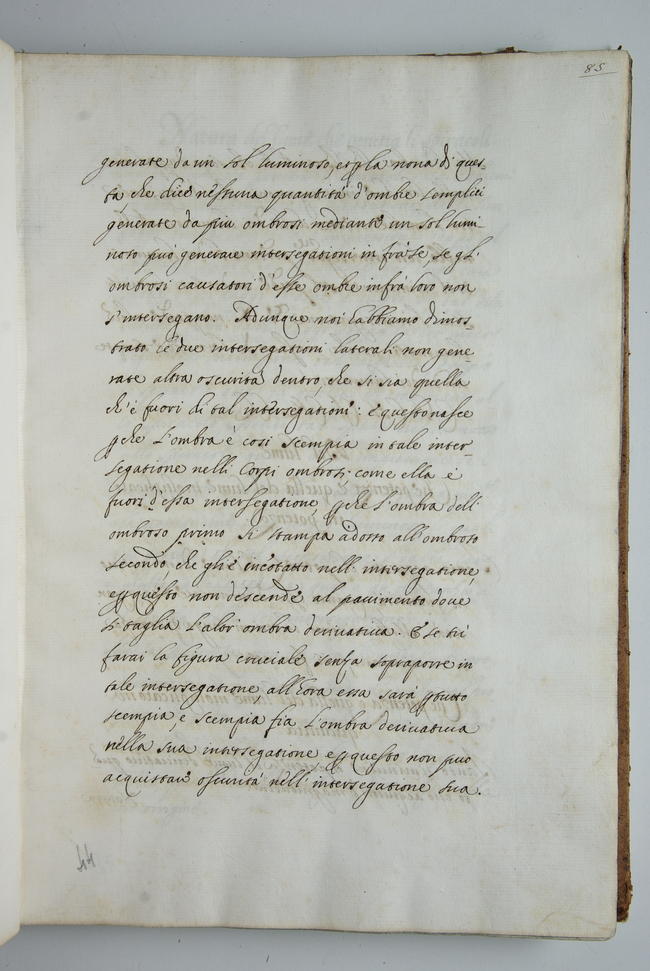 85
generate da un sol luminoso, e ꝑ la nona di ques-
ta, che dice nessuna quantità d'ombre semplici
generate da piu ombrosi mediante un sol lumi-
noso può generare intersegationi in fra se se gl'
ombrosi causatori d'esse ombre infrà loro non
s'intersegano. Adunque noi habbiamo dimos
trato le due intersegationi laterali non gene-
rare altra oscurità dentro, che si sia quella
ch'è fuori di tal intersegationi: e questo nasce
ꝑche l'ombra è cosi scempia in tale inter-
segatione nelli Corpi ombrosi, come ella è
fuori d'essa intersegatione, ꝑche l'ombra dell'
ombroso primo si stampa adosso all'ombroso
secondo, che gli è incōtatto nell'intersegatione,
e ꝑ questo non descende al pavimento dove
si taglia l'altr'ombra derivativa. E se tu
farai la figura cruciale senza sopraporre in
tale intersegatione, all'hora essa sarà ꝑ tutto
scempia, e scempia fia l'ombra derivativa
nella sua intersegatione, e ꝑ questo non può
acquistare oscurità nell'intersegatione sua.
44